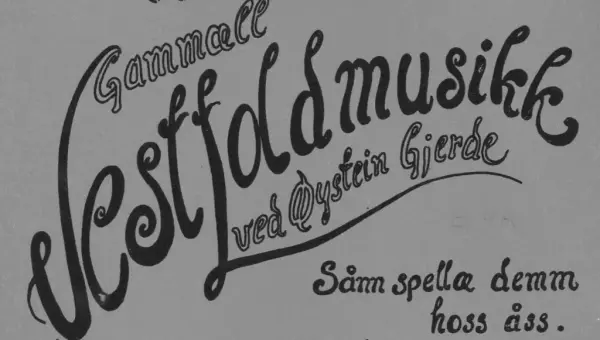 Gammæll
Vestfoldmusikk
ved Øystein Gjerde
Såm spellæ demm
hoss åss.